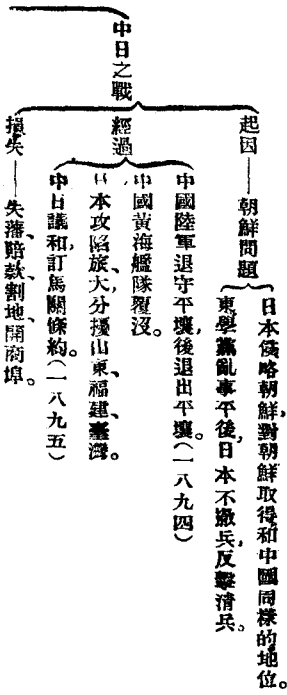 中日之戰
起因——朝鮮問題
日本侵略朝鮮,對朝鮮取得和中國同樣的地位。
東學黨亂事平後,日本不撤兵,反擊清兵。
經過
中國陸軍退守平壤,後退出平壤。(一八九四)
中國黃海艦隊覆沒。
日本攻陷旅、大,分擾山東、福建、臺灣。
中日議和,訂馬關條約。(一八九五)
損失——失藩、賠款、割地、開商埠。